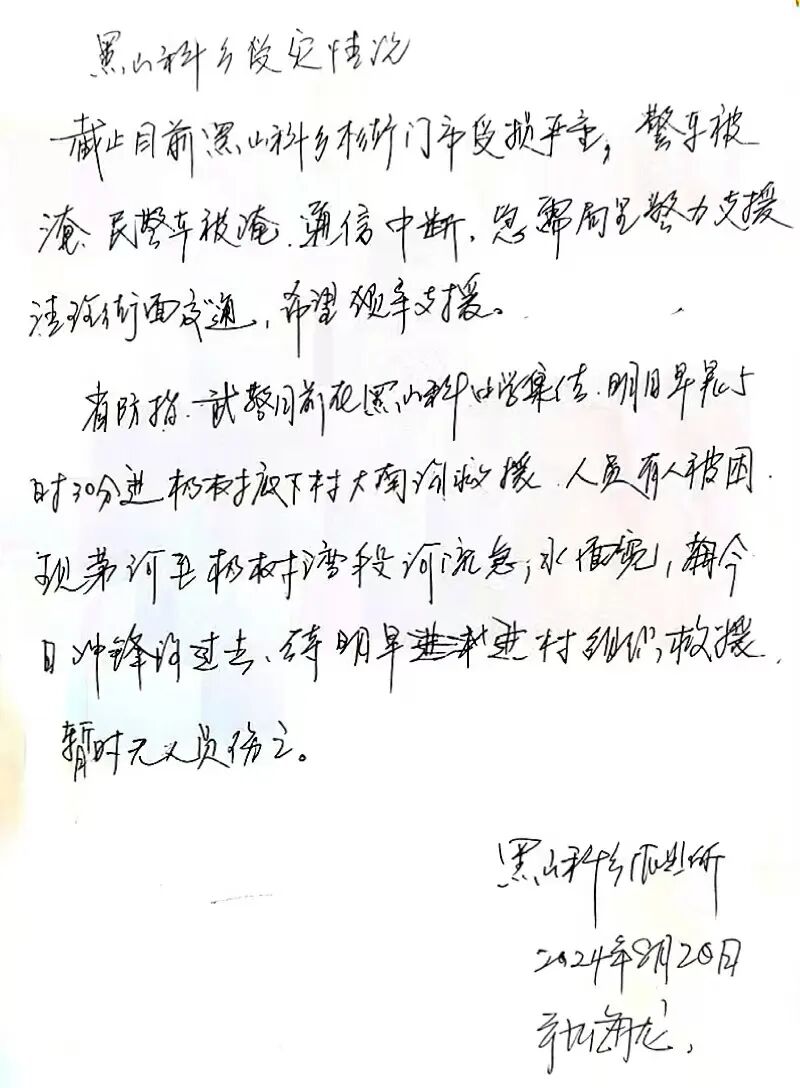 黑山科乡受灾情况
截止目前黑山科乡松街门市受损严重，警车被
淹、民警车被淹、通信中断，急需局里警力支援
清理街面交通，希望领导支援。
省防指、武警目前在黑山科中学集结，明日早晨5
时30分进杨树底下村大南沟救援，人员有人被困，
现第河至杨树湾段河流急，水面宽，今
日冲锋没过去、待明早进村组织救援，
暂时无人员伤亡。
黑山科乡派出所
2024年8月20日
海龙